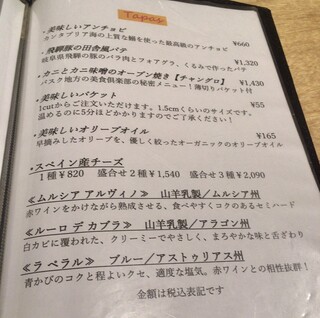 Tapas
・美味しいアンチョビ ¥660
カンタブリア海の上質な鰯を使った最高級のアンチョビ
・飛騨豚の田舎風パテ ¥1,320
岐阜県飛騨の豚のバラ肉とフォアグラ、くるみで作ったパテ
・カニとカニ味噌のオーブン焼き【チャングロ】 ¥1,430
バスク地方の美食倶楽部の秘密メニュー!薄切りバケット付
・美味しいバケット
1cutからご注文いただけます。1.5cmくらいのサイズです。 ¥55
温めるのに5分ほどかかりますのでご了承ください!
・美味しいオリーブオイル ¥165
早摘みしたオリーブを、優しく絞ったオーガニックのオリーブオイル
・スペイン産チーズ
1種¥820 盛合せ2種¥1,540 盛合せ3種¥2,090
≪ムルシア アルヴィノ≫ 山羊乳製/ムルシア州
赤ワインをかけながら熟成させる、食べやすくコクのあるセミハード
≪ルーロ デ カブラ≫ 山羊乳製/アラゴン州
白カビに覆われた、クリーミーでやさしく、まろやかな味と舌ざわり
≪ラ ペラル≫ ブルー/アストゥリアス州
青かびのコクと程よいクセ、適度な塩気。赤ワインとの相性抜群!
金額は税込表記です